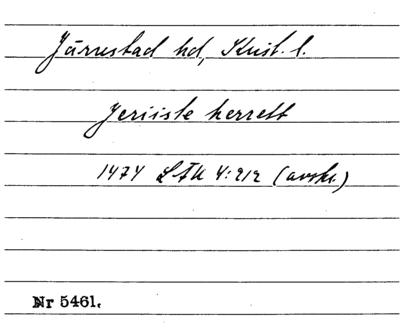 Järrestad hd, Krist. l.
Jeriiste herrett
1474 LÄU 4:212 (avskr.)
Nr 5461.